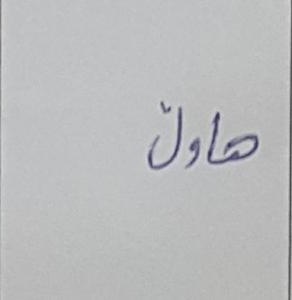 هاولّ